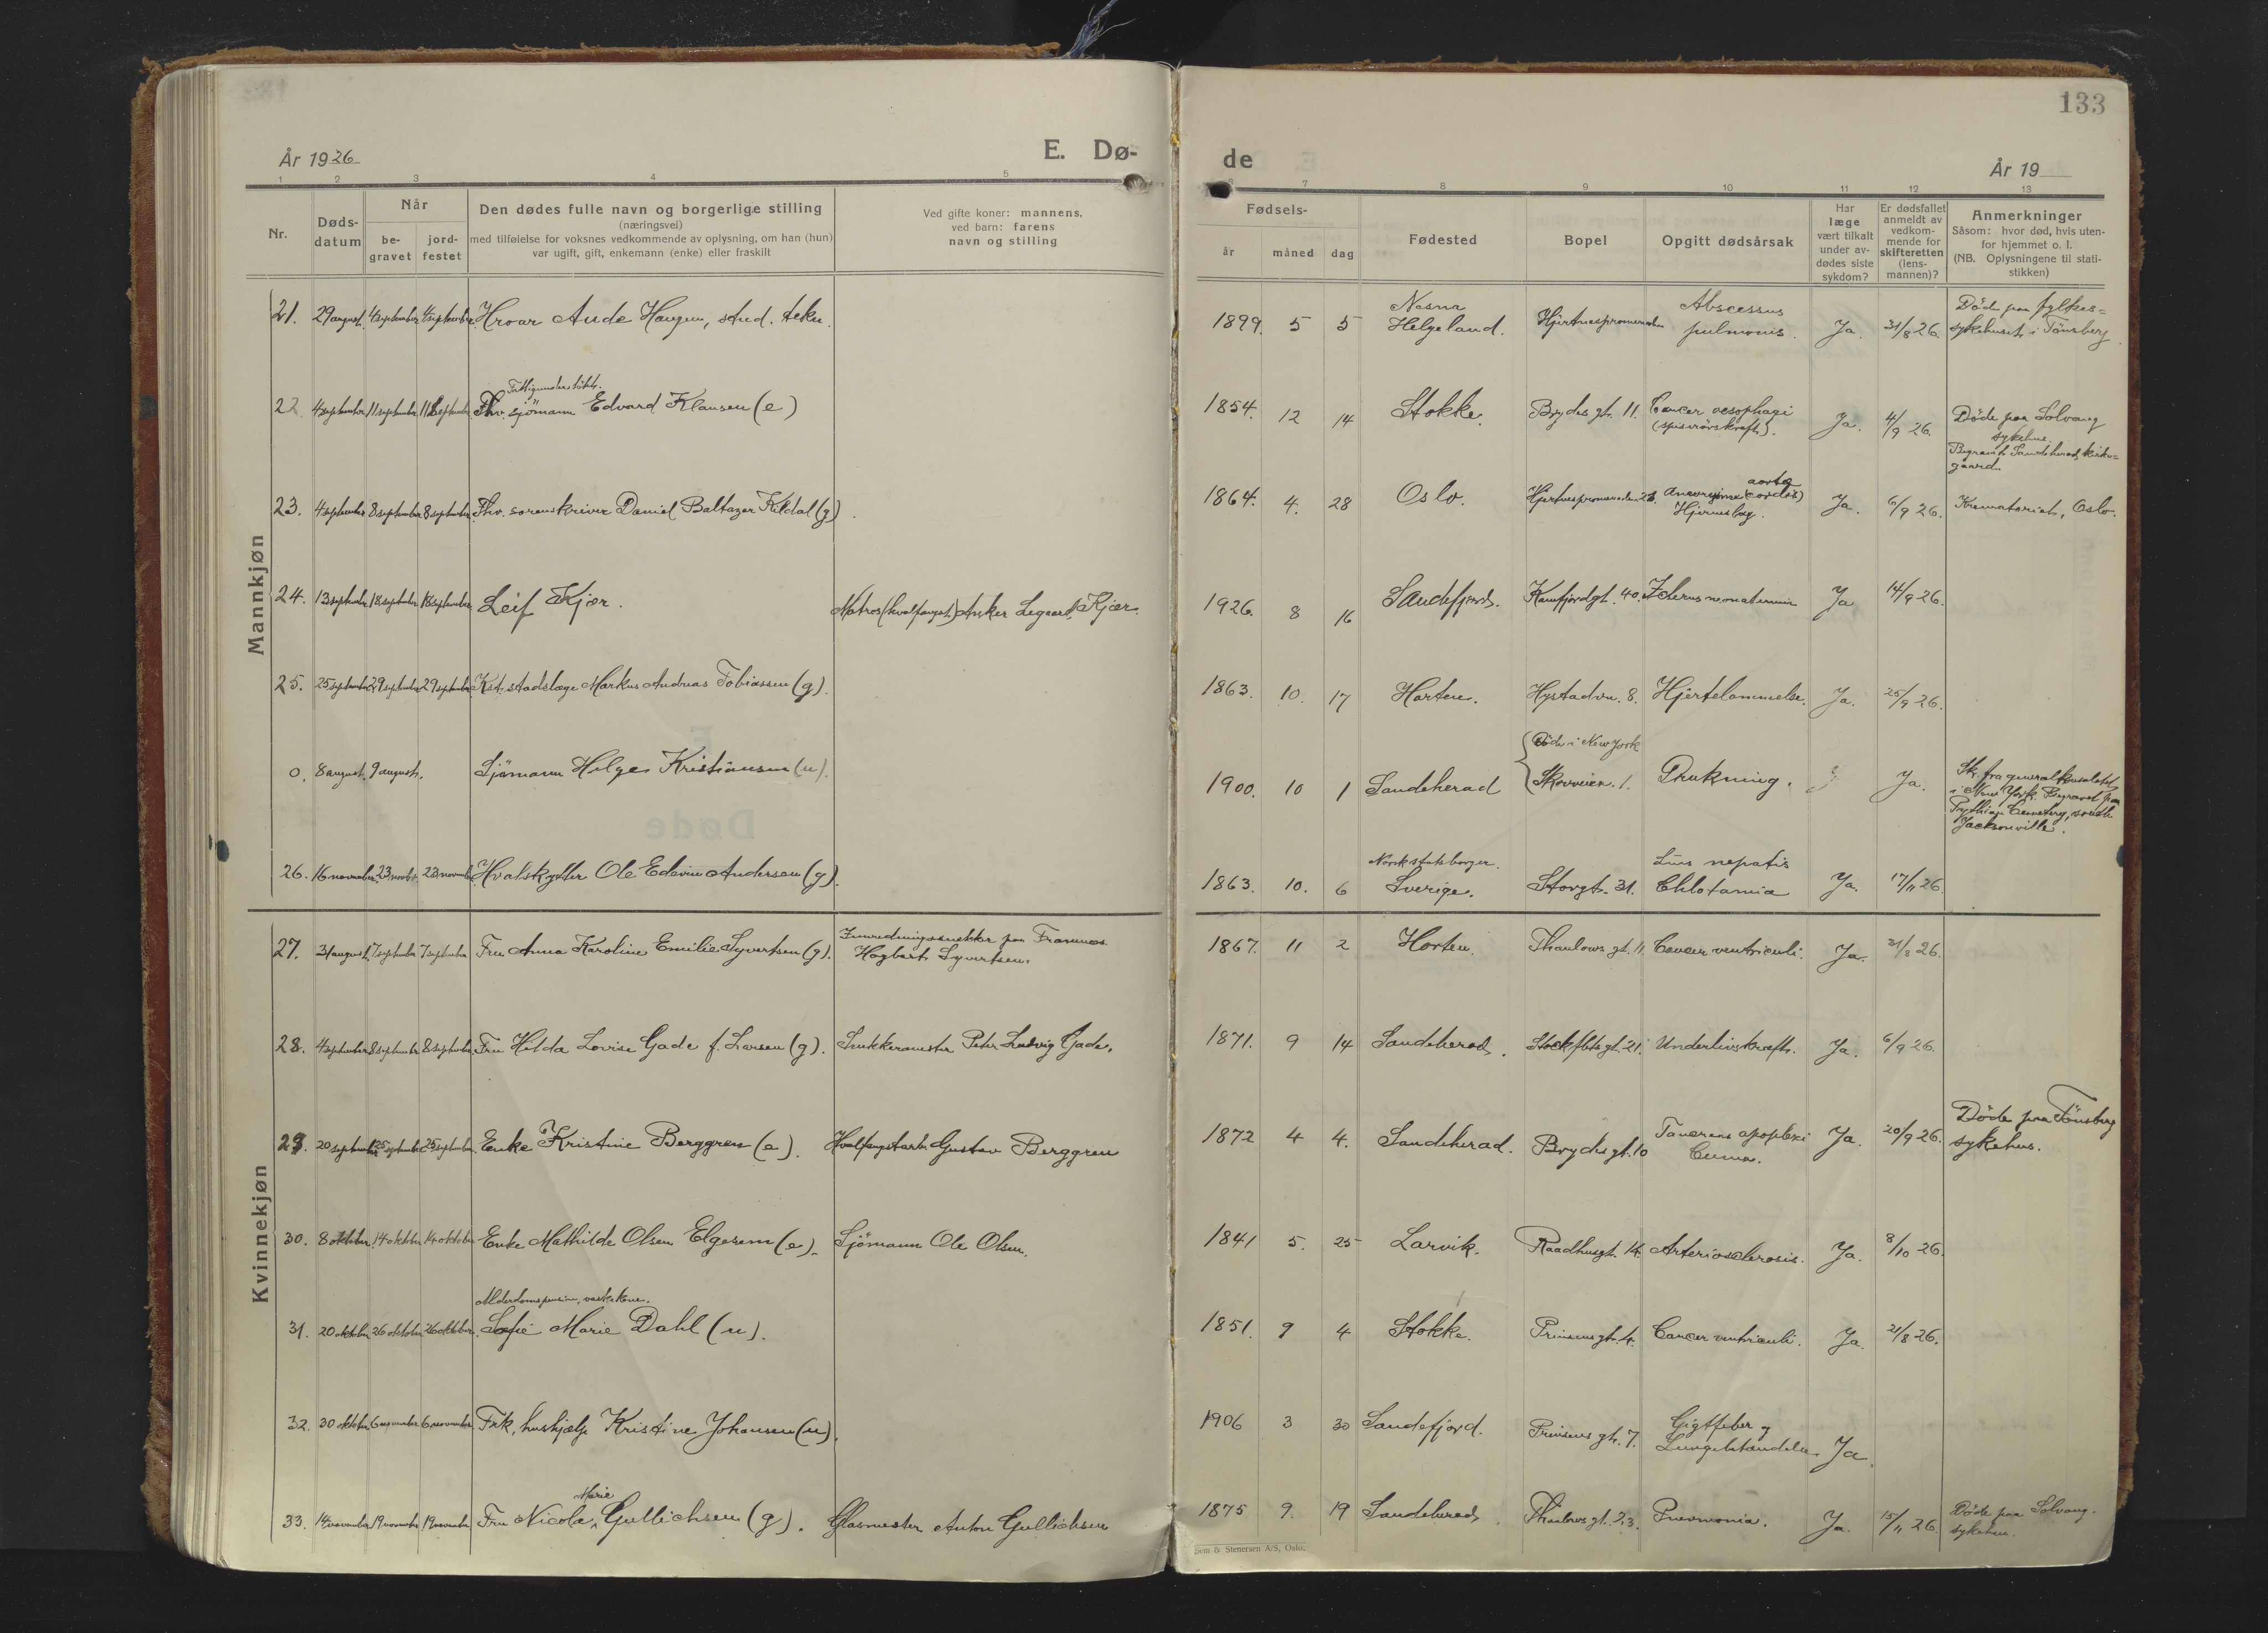 133
År 1926
E. Dø-
de
År 19
1 2 3 4 5
7 8 9 10 11 12 13
Nr.
Døds-
datum
Når
be-
gravet
jord-
festet
Den dødes fulle navn og borgerlige stilling
(næringsvei)
med tilføielse for voksnes vedkommende av oplysning, om han (hun)
var ugift, gift, enkemann (enke) eller fraskilt
Ved gifte koner: mannens,
ved barn: farens
navn og stilling
Fødsels-
år måned dag
Fødested
Bopel
Opgitt dødsårsak
Har
læge
vært tilkalt
under av-
dødes siste
sykdom?
Er dødsfallet
anmeldt av
vedkom-
mende for
skifteretten
(lens-
mannen)?
Anmerkninger
Såsom: hvor død, hvis uten-
for hjemmet o. l.
(NB. Oplysningene til stati-
stikken)
Mannkjøn
21. 29 august. 4 september 4 september Hroar Aude Haugen, stud. tekn. 1899. 5 5 Nesna
Helgeland. Hjertnespromenaden Abscessus
pulmonis. Ja. 31/8 26. Döde paa fylkes=
sykehuset i Tönsberg.
Fattigunderstöttet.
22. 4 september 11 september 11 september Fhv. sjömann Edvard Klausen (e) 1854. 12 14 Stokke. Brydes gt. 11. Cancer oesophagi
(spiserörskreft). Ja. 4/9 26. Döde paa Solvang
sykehus.
Begravet Sandeherad kirke=
gaard.
23. 4 september 8 september 8 september Fhv. sorenskriver Daniel Baltazar Kildal (g). 1864. 4. 28 Oslo. Hjertnespromenaden 23. Aneurysma aorta (cordis)
Hjerneslag. Ja. 6/9 26. Krematoriet, Oslo.
24. 13 september 18 september 18 september Leif Kjær. Matros (hvalfangst) Anker Kjær. 1926. 8 16 Sandefjord. Kamfjordgt. 40. Icterus neonatorum Ja 14/9 26.
25. 25 september 29 september 29 september Kst. stadslæge Markus Andreas Tobiassen (g). 1863. 10. 17 Horten. Hystadvn. 8. Hjertelammelse. Ja. 25/9 26.
0. 8 august. 9 august. Sjömann Helge Kristiansen (u). 1900. 10 1 Sandeherad Döde i New York
Skovveien. 1. Drukning. Ja. Skr. fra generalkonsulatet
i New York. Begravet paa
Cemetery, south
Jacksonville.
26. 16 november. 23 novbr. 23 november Hvalskytter Ole Edevin Andersen (g). 1863. 10. 6 Norsk statsborger.
Sverige. Storgt. 31. Ja. 17/11 26.
Kvinnekjøn
27. 31 august. 7 september 7 september Fru Anna Karoline Emilie Syvertsen (g). Inuredningssnekker paa Framnæs
Hagbart Syvertsen. 1867. 11 2 Horten. Thaulows gt. 11. Cancer ventriculi. Ja. 31/8 26.
28. 4 september 8 september 8 september Fru Hilda Lovise Gade f. Larsen (g). Snekkermester Peter Ludvig Gade. 1871. 9 14 Sandeherad. Stockflets gt. 21. Underlivskreft. Ja. 6/9 26.
29. 20 september 25 september 25 september Enke Kristine Berggren (e). Hvalfangstarb. Gustav Berggren 1872 4 4. Sandeherad. Brydes gt. 10 Ja. 20/9 26. Döde paa Tönsberg
sykehus.
30. 8 oktober. 14 oktober 14 oktober Enke Mathilde Olsen Elgesem (e). Sjömann Ole Olsen. 1841 5. 25 Larvik. Raadhusgt. 14. Arteriosclerosis. Ja. 8/10 26.
Alderdomspension, vaskekone.
31. 20 oktober 26 oktober 26 oktober. Sofie Marie Dahl (u). 1851. 9 4 Stokke. Prinsens gt. 4. Cancer ventriculi. Ja. 21/8 26.
32. 30 oktober 6 november 6 november Frk. hushjælp Kristine Johansen (u). 1906 3 30 Sandefjord. Prinsens gt. 7. Gigtfeber og
Lungebetændelse Ja.
33. 14 november 19 november 19 november Fru Nicola Marie Gullichsen (g). Glasmester Anton Gullichsen 1875 9. 19 Sandeherad. Thaulows gt. 23. Pneumonia. Ja. 15/11 26. Döde paa Solvang
sykehus.
Sem & Stenersen A/S, Oslo.